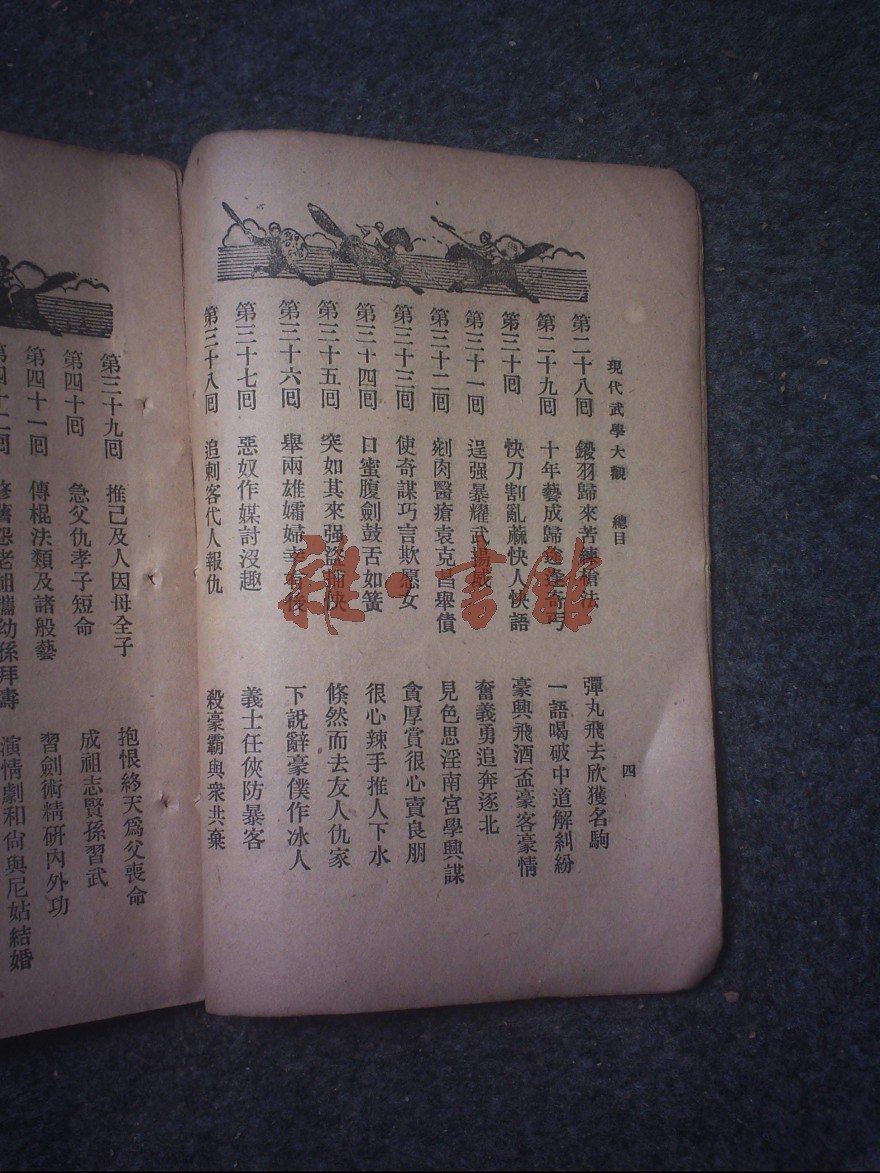 現代武學大觀 總目 四
第二十八回 鎩羽歸來苦練槍法 彈丸飛去欣獲名駒
第二十九回 十年藝成歸途逢奇丐 一語喝破中道解糾紛
第三十回 快刀割亂蔴快人快語 豪興飛酒盃豪客豪情
第三十一回 逞强暴耀武揚威 奮義勇追奔逐北
第三十二回 剜肉醫瘡袁克昌舉債 見色思淫南宮學興謀
第三十三回 使奇謀巧言欺愿女 貪厚賞很心賣良朋
第三十四回 口蜜腹劍鼓舌如簧 很心辣手推人下水
第三十五回 突如其來强盜捕快 倏然而去友人仇家
第三十六回 舉兩雄孀婦幸有後 下說辭豪僕作冰人
第三十七回 惡奴作媒討沒趣 義士任俠防暴客
第三十八回 追刺客代人報仇 殺豪霸與衆共棄
第三十九回 推己及人因母全子 抱恨終天爲父喪命
第四十回 急父仇孝子短命 成祖志賢孫習武
第四十一回 傳棍法類及諸般藝 習劍術精研內外功
第四十二回 修舊怨老祖攜幼孫拜壽 演情劇和尙與尼姑結婚
雜·書館